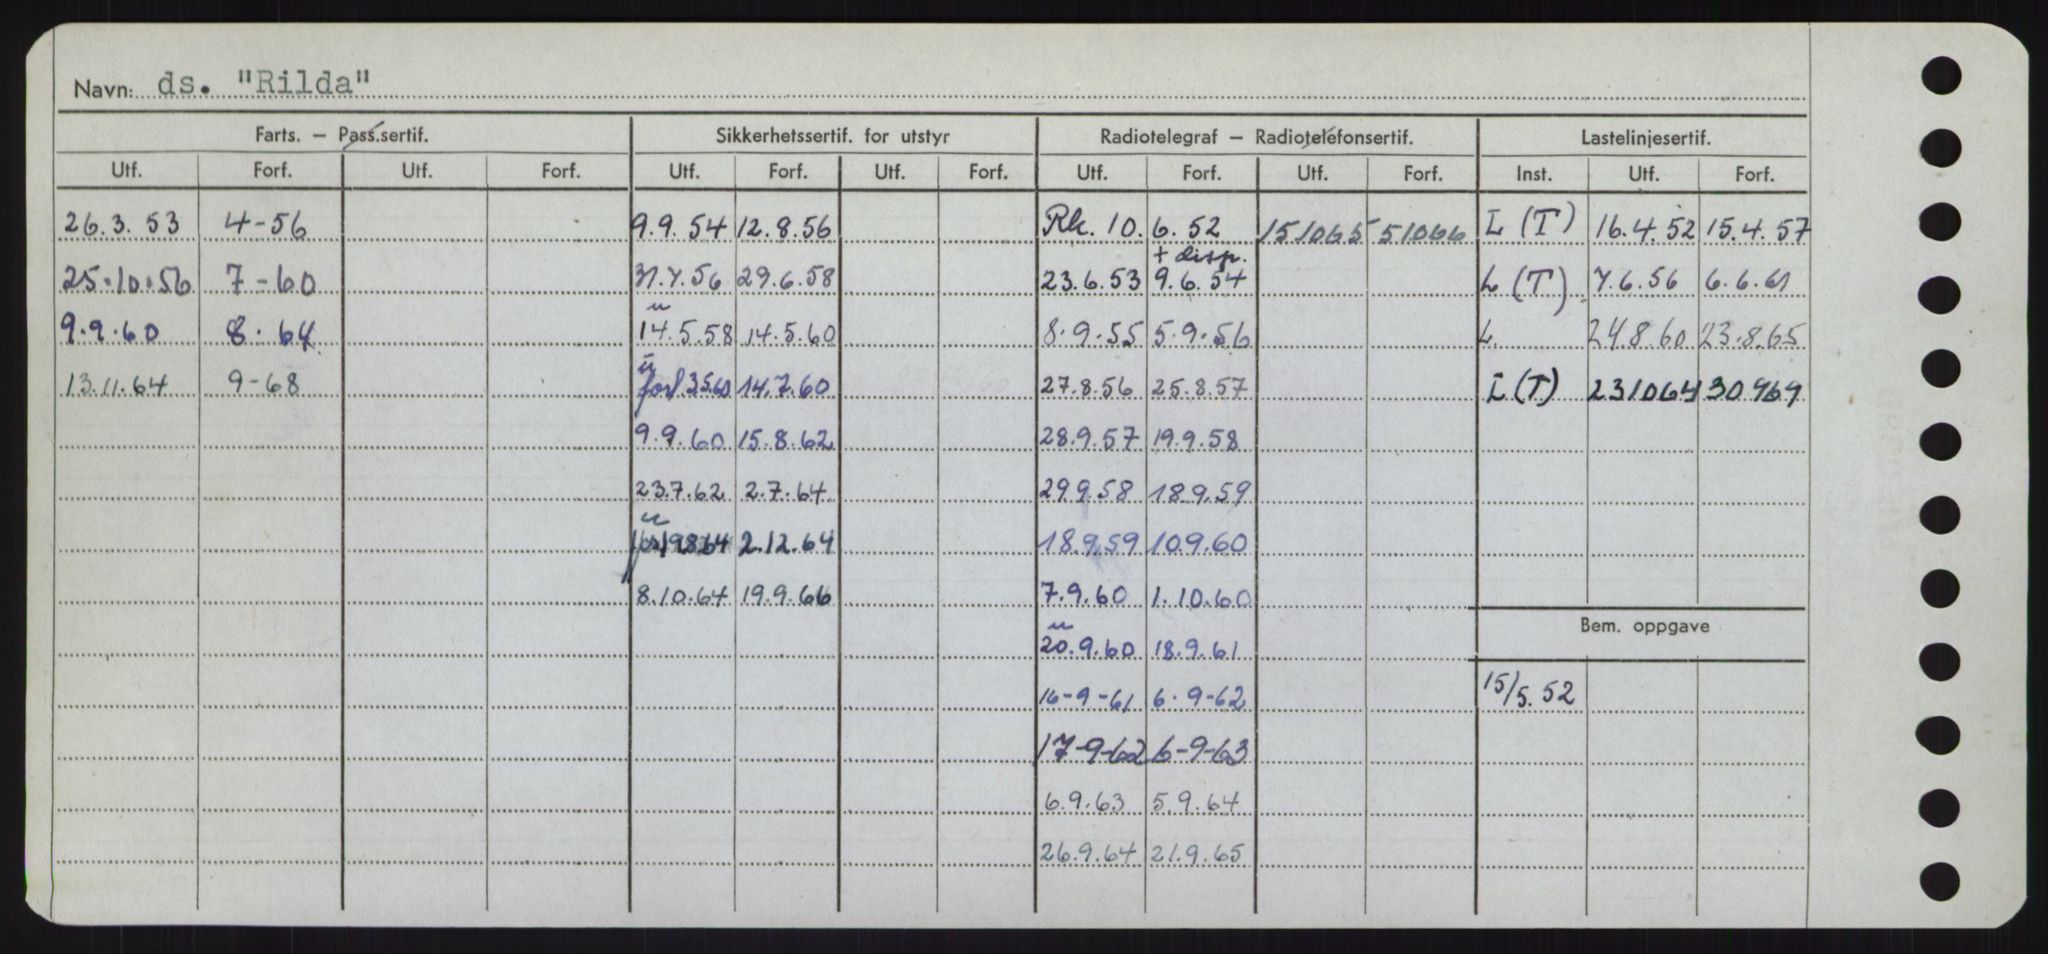 Navn: ds. "Rilda"
Farts. – Pass.sertif. Sikkerhetssertif. for utstyr Radiotelegraf – Radiotelefonsertif. Lastelinjesertif.
Utf. Forf. Utf. Forf. Utf. Forf. Utf. Forf. Utf. Forf. Utf. Forf. Inst. Utf. Forf.
26.3.53 4-56 9.9.54 12.8.56 Rk. 10.6.52 151065 51066 L (T) 16.4.52 15.4.57
+ disp.
25.10.56 7-60 31.7.56 29.6.58 23.6.53 9.6.54 L (T) 7.6.56 6.6.61
u
9.9.60 8.64 14.5.58 14.5.60 8.9.55 5.9.56 L 24.8.60 23.8.65
u
13.11.64 9-68 forl 3.5.60 14.7.60 27.8.56 25.8.57 L (T) 231064 30969
9.9.60 15.8.62 28.9.57 19.9.58
23.7.62 2.7.64 29.9.58 18.9.59
u
forl 19864 2.12.64 18.9.59 10.9.60
8.10.64 19.9.66 7.9.60 1.10.60
Bem. oppgave
u
20.9.60 18.9.61
16-9-61 6.9-62 15/5.52
17-9-62 6-9-63
6.9.63 5.9.64
26.9.64 21.9.65